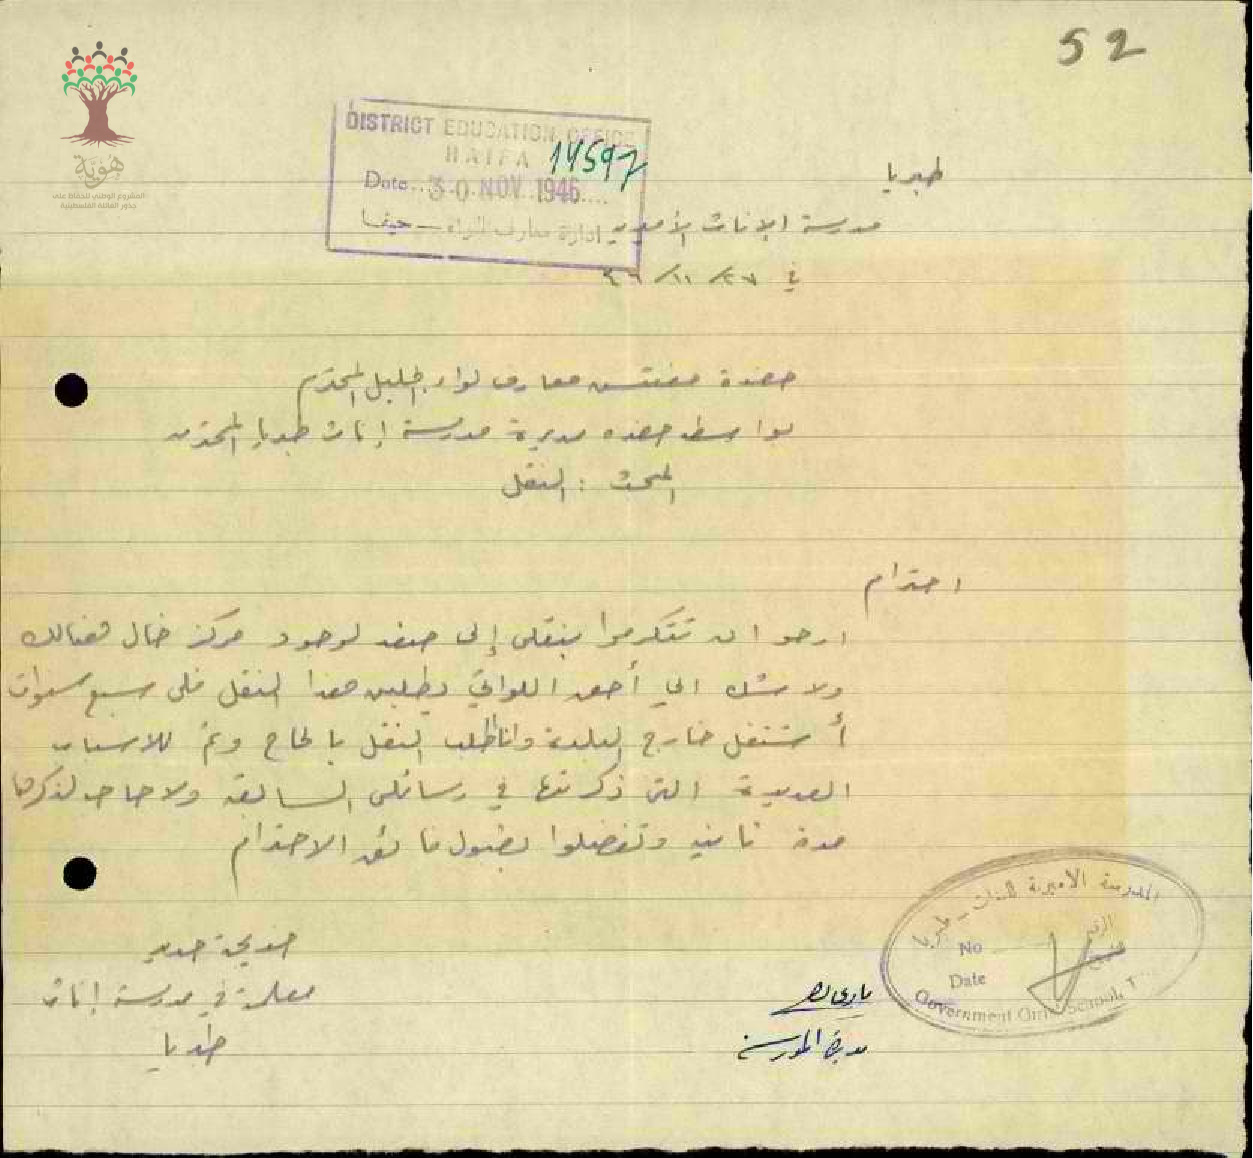 52
هُويَّة
المشروع الوطني للحفاظ على
جذور العائلة الفلسطينية
DISTRICT EDUCATION OFFICE
HAIFA 14597
Date.. 30 NOV 1946....
ادارة معارف اللواء — حيفا
طبريا
مدرسة الإناث الأميرية
في ٢٧/١١/٤٦
حضرة مفتش معارف لواء الجليل المحترم
بواسطة حضرة مديرة مدرسة إناث طبريا المحترمة
المبحث : النقل
احترام
ارجو ان تتكرموا بنقلي إلى صفد لوجود مركز خال هنالك
ولا شك اني أحق اللواتي يطلبن هذا النقل فلي سبع سنوات
أشتغل خارج البلدة وانا اطلب النقل بالحاح وثم للاسباب
العديدة التي ذكرتها في رسائلي السابقة ولا حاجة لذكرها
مرة ثانية وتفضلوا بقبول فائق الاحترام
خديجة
معلمة في مدرسة إناث
طبريا
مديرة المدرسة
المدرسة الأميرية للبنات - طبريا
No الرقم
Date
Government Girls' School, T